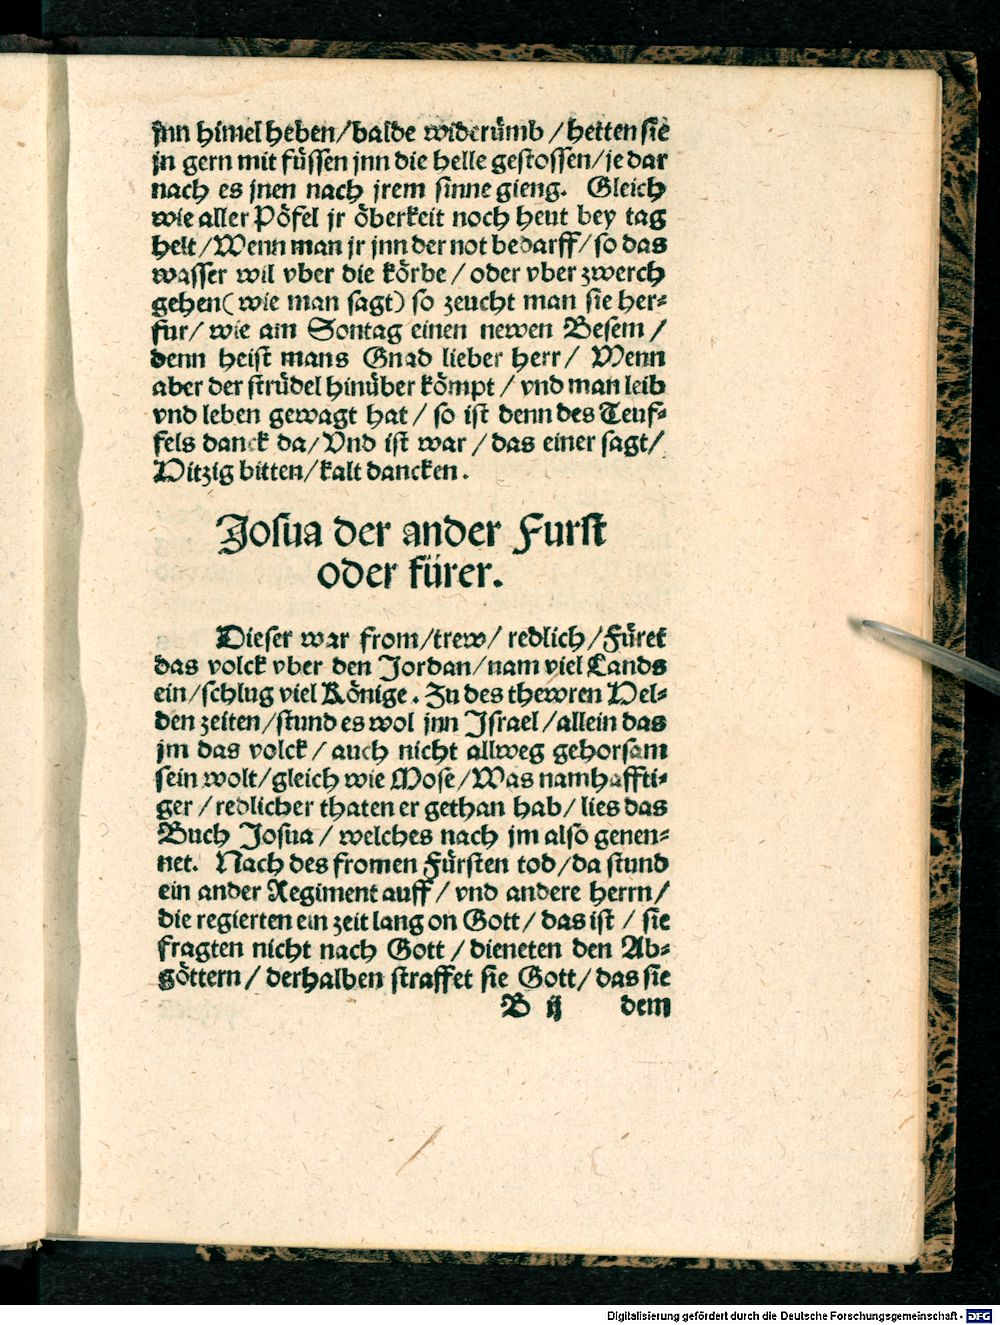 jnn himel heben/balde widerümb /hetten sie
jn gern mit füssen jnn die helle gestossen/je dar
nach es jnen nach jrem sinne gieng. Gleich
wie aller Pöfel jr öberkeit noch heut bey tag
helt/Wenn man jr jnn der not bedarff/so das
wasser wil vber die körbe / oder vber zwerch
gehen( wie man sagt) so zeucht man sie her⸗
fur/ wie am Sontag einen newen Besem /
denn heist mans Gnad lieber herr/ Wenn
aber der strüdel hinüber kömpt / vnd man leib
vnd leben gewagt hat / so ist denn des Teuf⸗
fels danck da/Vnd ist war / das einer sagt/
Hitzig bitten/kalt dancken.
Josua der ander Furst
oder fürer.
Dieser war from/trew/ redlich/Füret
das volck vber den Jordan/nam viel Lands
ein/schlug viel Könige. Zu des thewren Hel⸗
den zeiten/stund es wol jnn Israel/allein das
jm das volck / auch nicht allweg gehorsam
sein wolt/gleich wie Mose/Was namhaffti⸗
ger / redlicher thaten er gethan hab/ lies das
Buch Josua / welches nach jm also genen⸗
net. Nach des fromen Fürsten tod/da stund
ein ander Regiment auff / vnd andere herrn/
die regierten ein zeit lang on Gott/ das ist / sie
fragten nicht nach Gott / dieneten den Ab⸗
göttern/ derhalben straffet sie Gott/ das sie
B ij dem
Digitalisierung gefördert durch die Deutsche Forschungsgemeinschaft - DFG